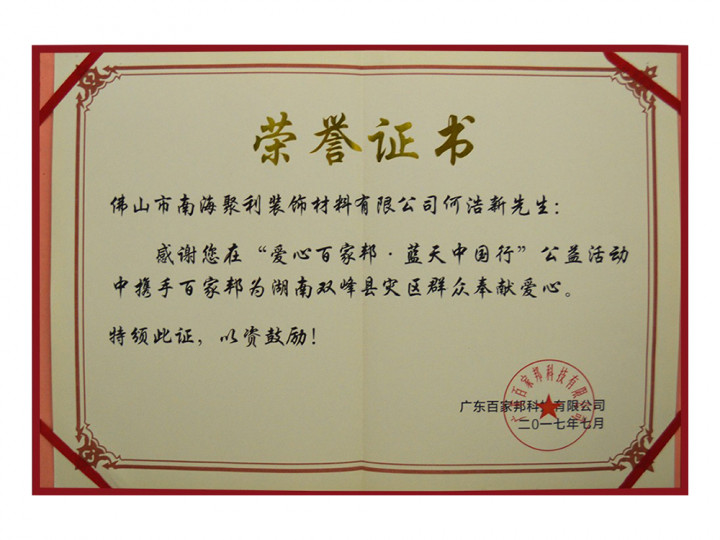 荣誉证书
佛山市南海聚利装饰材料有限公司何浩新先生：
感谢您在“爱心百家邦·蓝天中国行”公益活动
中携手百家邦为湖南双峰县灾区群众奉献爱心。
特颁此证，以资鼓励！
广东百家邦科技有限公司
二〇一七年七月
广东百家邦科技有限公司